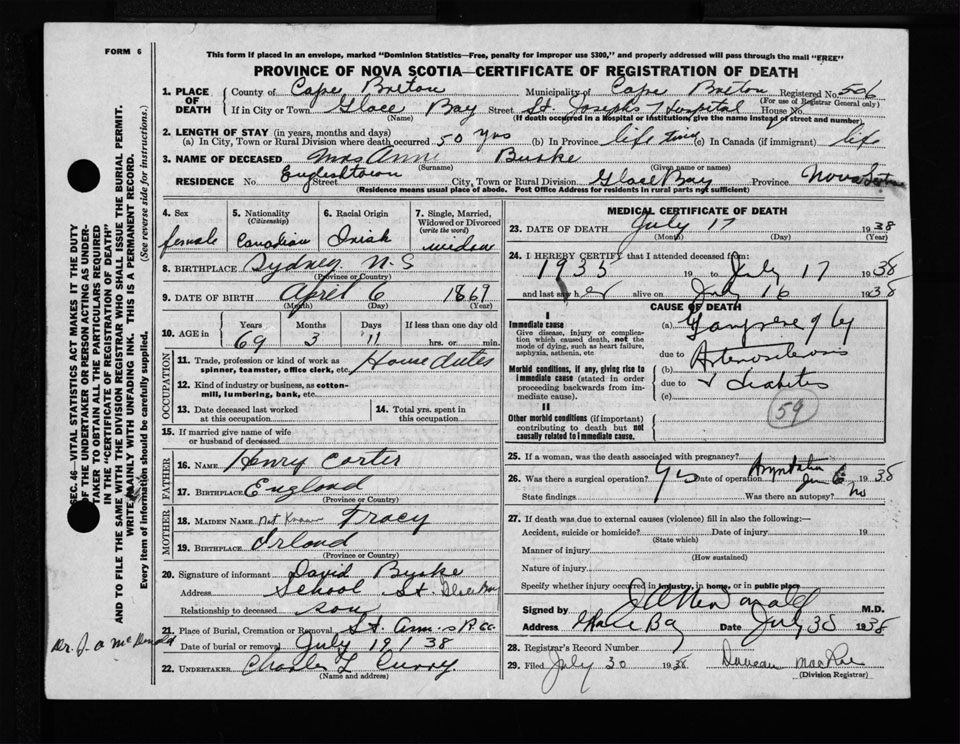 FORM 6
This form if placed in an envelope, marked "Dominion Statistics—Free, penalty for improper use $300," and properly addressed will pass through the mail "FREE"
PROVINCE OF NOVA SCOTIA—CERTIFICATE OF REGISTRATION OF DEATH
1. PLACE OF DEATH
County of Cape Breton Municipality of Cape Breton Registered No. 506
(For use of Registrar General only)
If in City or Town Glace Bay Street St. Josephs Hospital House No.
(Name) (If death occurred in a Hospital or Institution, give the name instead of street and number)
2. LENGTH OF STAY (in years, months and days)
(a) In City, Town or Rural Division where death occurred 50 yrs (b) In Province life time (c) In Canada (if immigrant) life
3. NAME OF DECEASED Mrs Annie Burke
(Surname) (Given name or names)
RESIDENCE No. Englishtown Street City, Town or Rural Division Glace Bay Province Nova Scotia
(Residence means usual place of abode. Post Office Address for residents in rural parts not sufficient)
4. Sex female
5. Nationality (Citizenship) Canadian
6. Racial Origin Irish
7. Single, Married, Widowed or Divorced (write the word) widow
8. BIRTHPLACE Sydney N-S
(Province or Country)
9. DATE OF BIRTH April 6 1869
(Month) (Day) (Year)
10. AGE in Years 69 Months 3 Days 11 If less than one day old hrs. or min.
OCCUPATION
11. Trade, profession or kind of work as spinner, teamster, office clerk, etc. House duties
12. Kind of industry or business, as cotton-mill, lumbering, bank, etc.
13. Date deceased last worked at this occupation
14. Total yrs. spent in this occupation
15. If married give name of wife or husband of deceased
FATHER
16. NAME Henry Carter
17. BIRTHPLACE England
(Province or Country)
MOTHER
18. MAIDEN NAME Not Known Tracy
19. BIRTHPLACE Irland
(Province or Country)
20. Signature of informant David Burke
Address School St. Glace Bay
Relationship to deceased son
21. Place of Burial, Cremation or Removal St. Ann's
Date of burial or removal July 19/38
22. UNDERTAKER Charles L Curry
(Name and address)
MEDICAL CERTIFICATE OF DEATH
23. DATE OF DEATH July 17 1938
(Month) (Day) (Year)
24. I HEREBY CERTIFY that I attended deceased from:
1935 19 to July 17 1938
and last saw her alive on July 16 1938
CAUSE OF DEATH
I
Immediate cause
Give disease, injury or complication which caused death, not the mode of dying, such as heart failure, asphyxia, asthenia, etc
(a) Gangrene of leg
due to
Morbid conditions, if any, giving rise to immediate cause (stated in order proceeding backwards from immediate cause).
(b) Arteriosclerosis
due to & diabetes
(c)
59
II
Other morbid conditions (if important) contributing to death but not causally related to immediate cause.
25. If a woman, was the death associated with pregnancy?
26. Was there a surgical operation? Yes Date of operation Amputation June 6 1938
State findings Was there an autopsy? No
27. If death was due to external causes (violence) fill in also the following:—
Accident, suicide or homicide? Date of injury 19
(State which)
Manner of injury
(How sustained)
Nature of injury
Specify whether injury occurred in industry, in home, or in public place
Signed by J A MacDonald M.D.
Address Glace Bay Date July 1938
28. Registrar's Record Number
29. Filed July 30 1938 Duncan MacRae
(Division Registrar)
SEC. 46—VITAL STATISTICS ACT MAKES IT THE DUTY
OF THE UNDERTAKER OR PERSON ACTING AS UNDERTAKER TO OBTAIN ALL THE PARTICULARS REQUIRED
IN THE "CERTIFICATE OF REGISTRATION OF DEATH"
AND TO FILE THE SAME WITH THE DIVISION REGISTRAR WHO SHALL ISSUE THE BURIAL PERMIT.
WRITE PLAINLY WITH UNFADING INK. THIS IS A PERMANENT RECORD.
Every item of information should be carefully supplied. (See reverse side for instructions.)
Dr. J. A McDonald